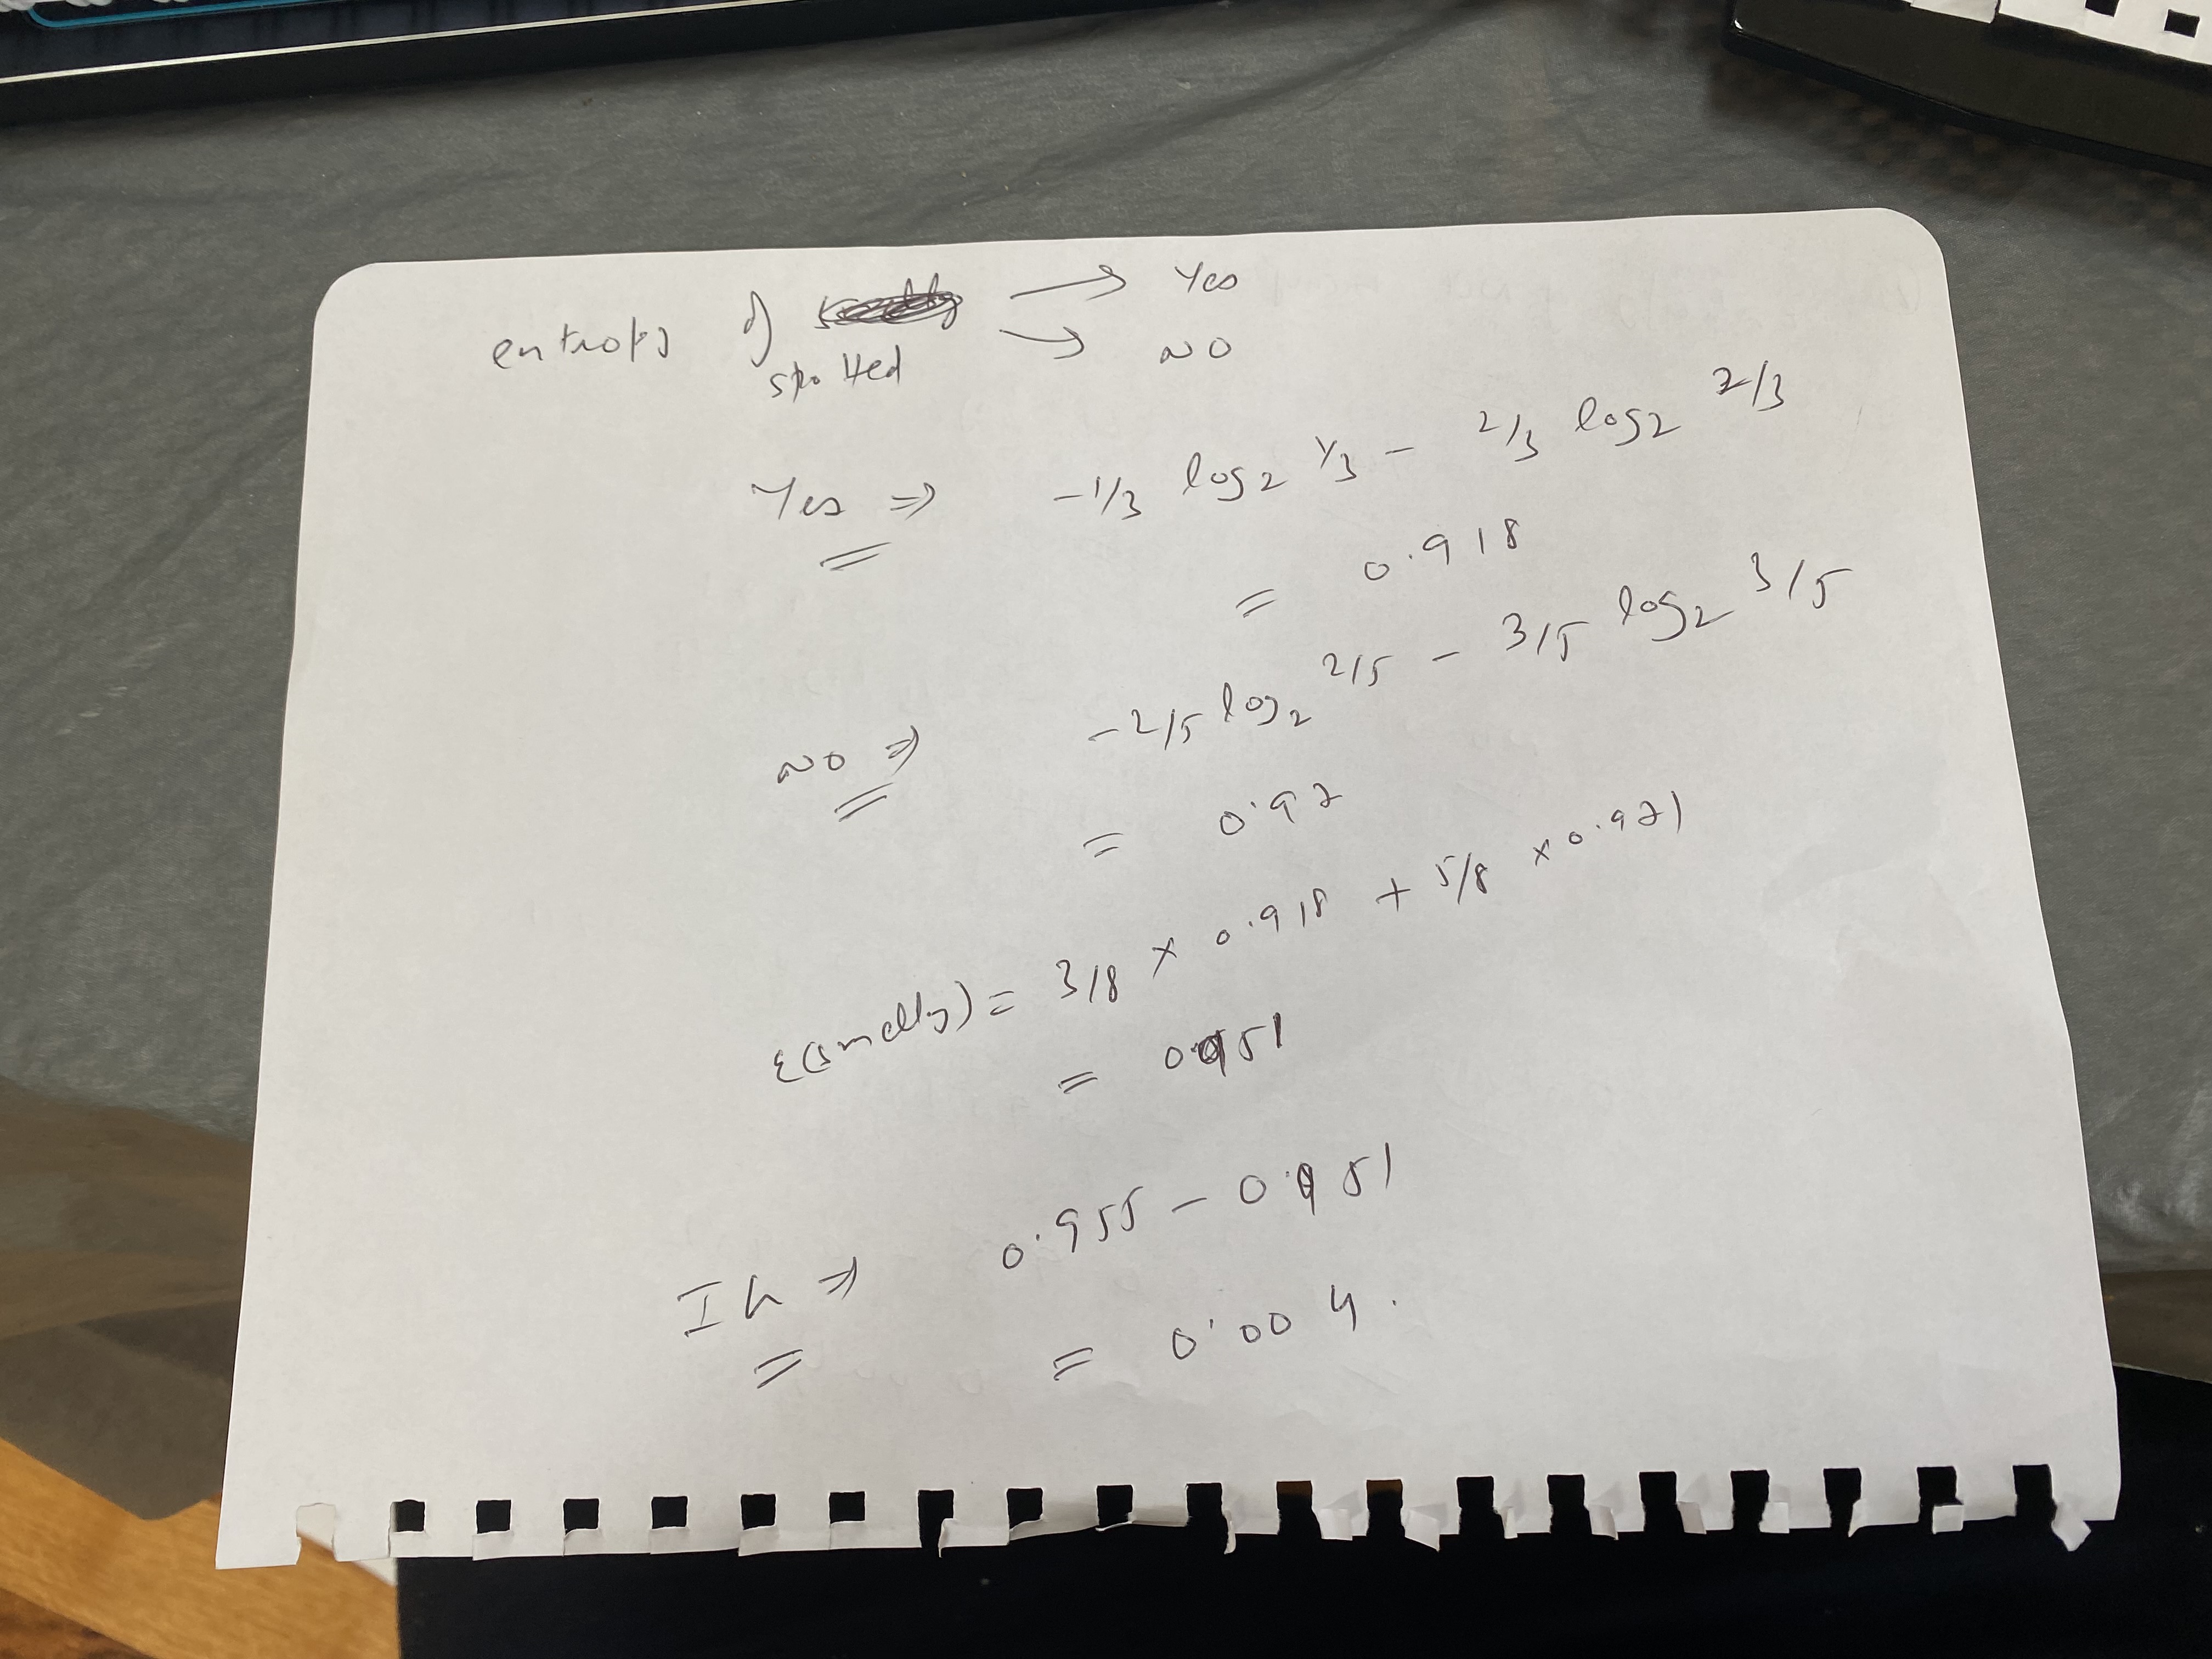 entropy 1) → Yes
spotted → NO
Yes ⇒ - 1/3 log2 1/3 - 2/3 log2 2/3
= 0.918
NO ⇒ - 2/5 log2 2/5 - 3/5 log2 3/5
= 0.97
E(smelly) = 3/8 x 0.918 + 5/8 x 0.971
= 0.951
IG ⇒ 0.955 - 0.951
= = 0.004.